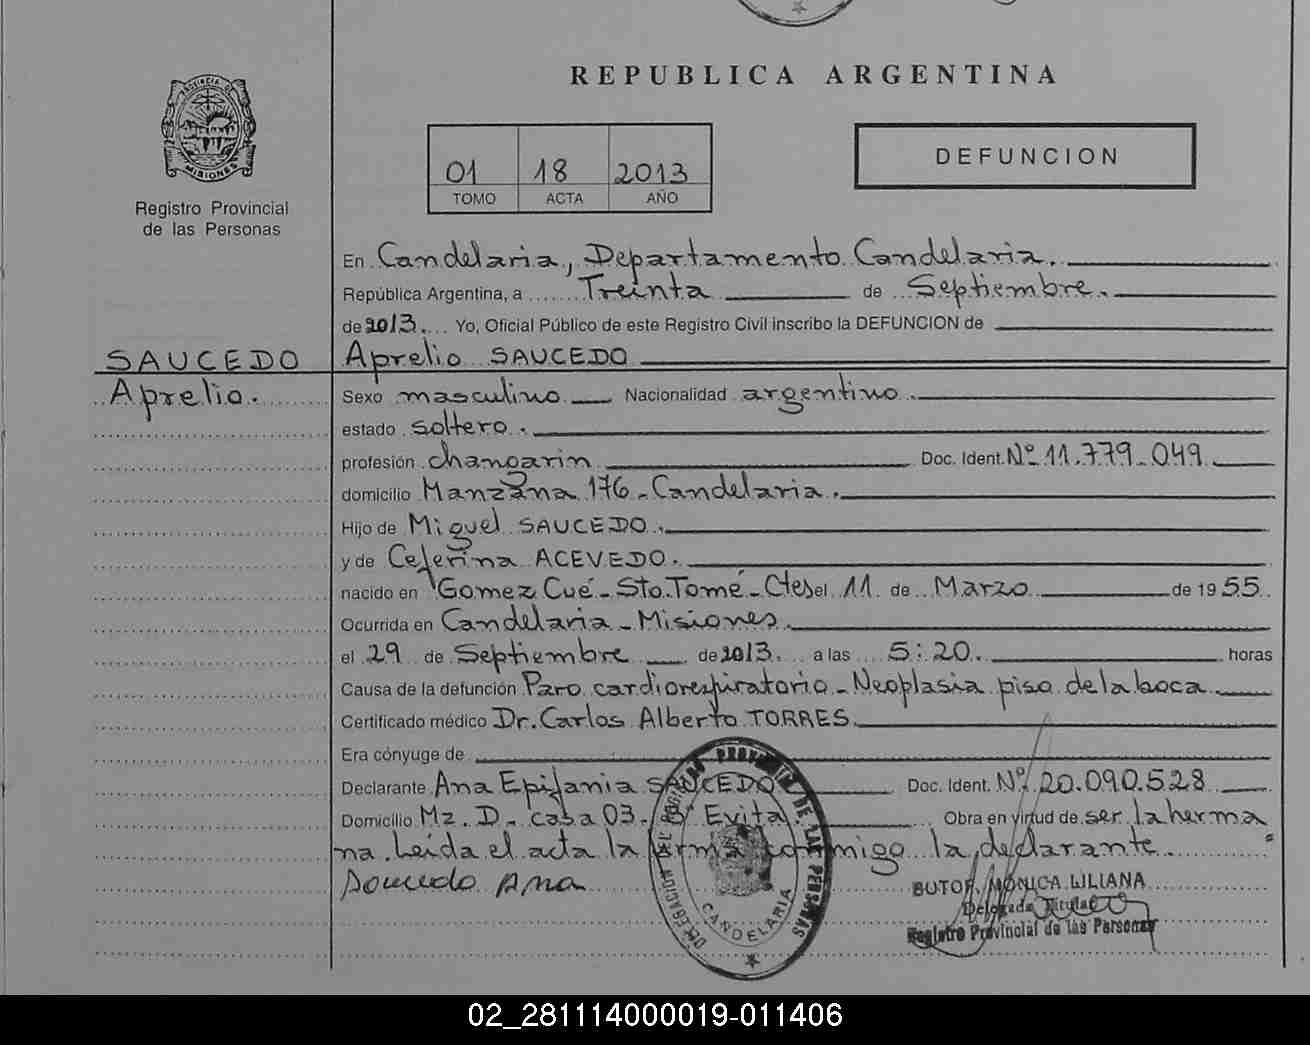 REPUBLICA ARGENTINA
PROVINCIA DE
MISIONES
Registro Provincial
de las Personas
01 18 2013
TOMO ACTA AÑO
DEFUNCION
En Candelaria, Departamento Candelaria.
República Argentina, a Treinta de Septiembre.
de 2013. Yo, Oficial Público de este Registro Civil inscribo la DEFUNCION de
SAUCEDO Aprelio SAUCEDO
Aprelio. Sexo masculino Nacionalidad argentino.
estado soltero.
profesión changarin Doc. Ident. Nº 11.779.049
domicilio Manzana 176 - Candelaria.
Hijo de Miguel SAUCEDO.
y de Ceferina ACEVEDO.
nacido en Gomez Cué - Sto. Tomé - Ctes el 11 de Marzo de 1955
Ocurrida en Candelaria - Misiones.
el 29 de Septiembre de 2013. a las 5:20. horas
Causa de la defunción Paro cardiorespiratorio - Neoplasia piso de la boca
Certificado médico Dr. Carlos Alberto TORRES.
Era cónyuge de
Declarante Ana Epifania SAUCEDO Doc. Ident. Nº 20.090.528
Domicilio Mz. D - casa 03 - Bº Evita. Obra en virtud de ser la herma
na. Leida el acta la firma conmigo la declarante.
Saucedo Ana
DELEGACION DEL REGISTRO PROVINCIAL DE LAS PERSONAS
CANDELARIA
BUTOF, MONICA LILIANA
Delegada Titular
Registro Provincial de las Personas
02_281114000019-011406